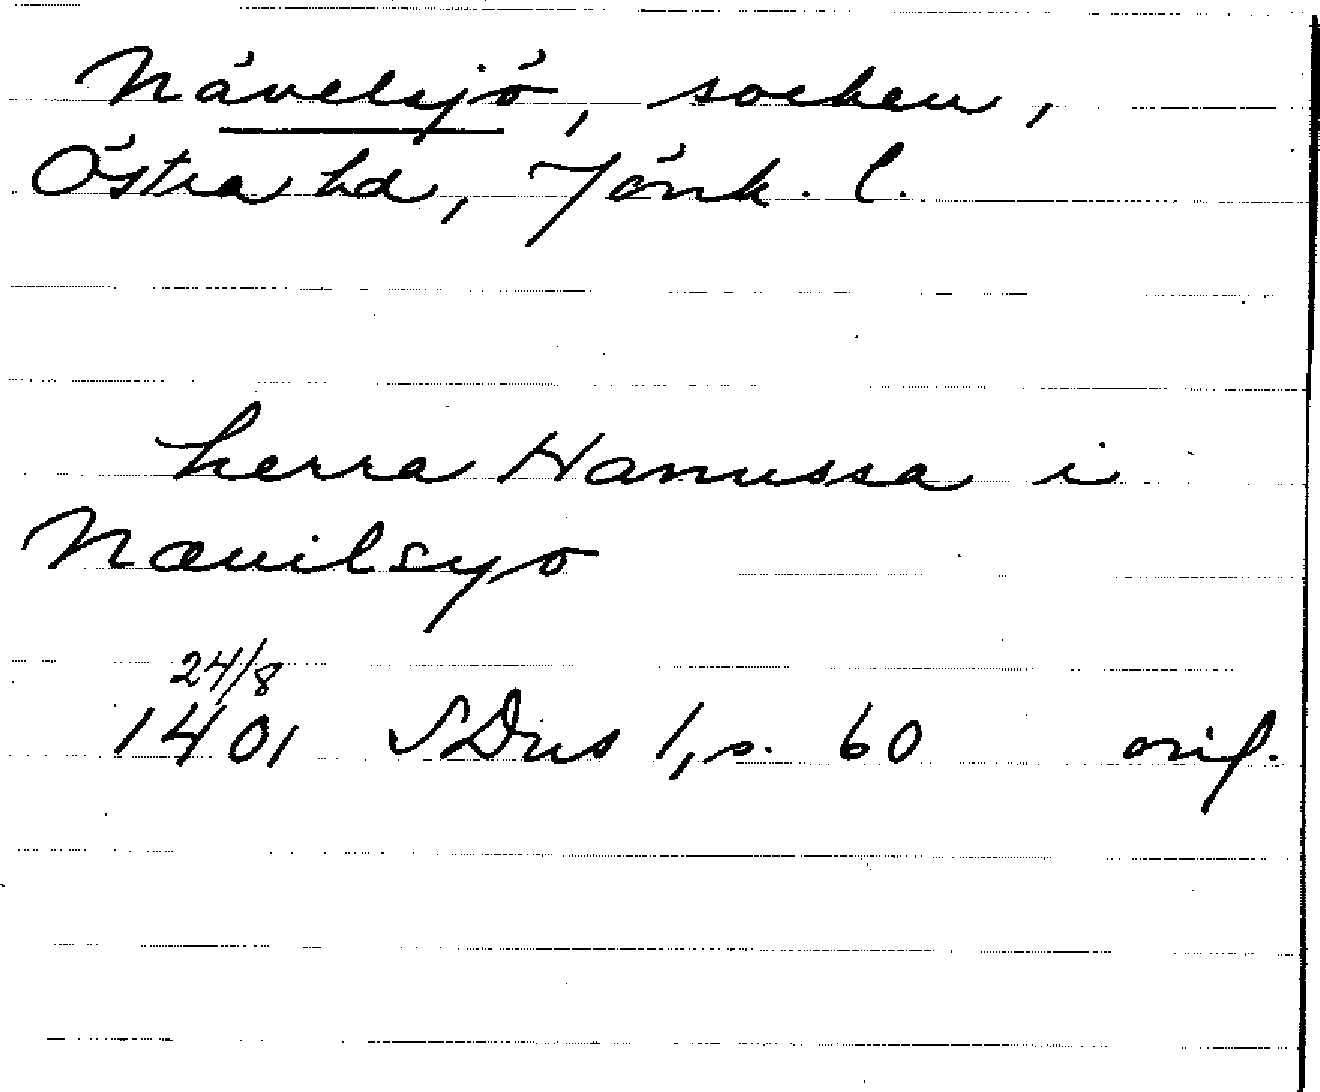 Nävelsjö, socken,
Östra hd, Jönk. l.
herra Hanussa i
Næuilsyo
24/8
1401 SDns 1, s. 60 orig.